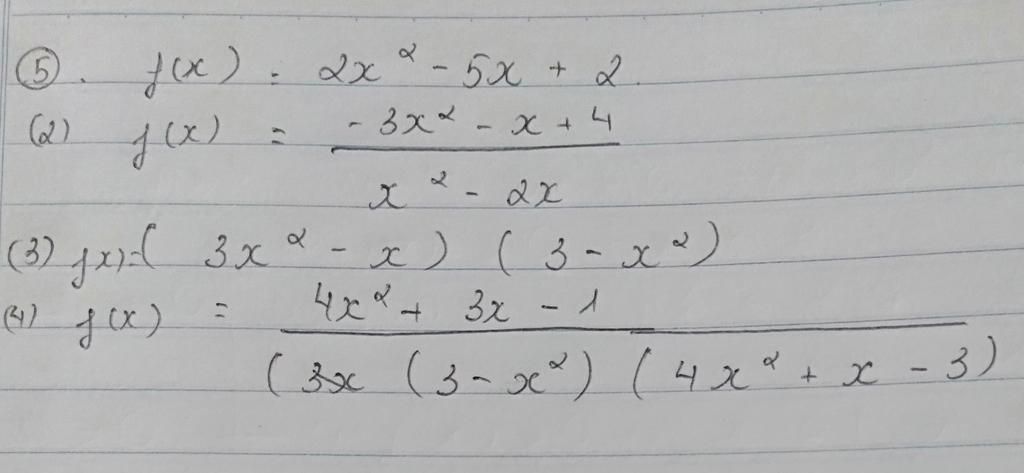 ⑤. f(x) = 2x² - 5x + 2
(2) f(x) = - 3x² - x + 4
x² - 2x
(3) f(x)=( 3x² - x) ( 3 - x²)
(4) f(x) = 4x² + 3x - 1
( 3x ( 3 - x²) ( 4x² + x - 3)